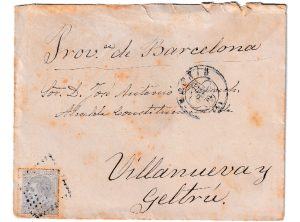 Prov.ᵃ de Barcelona
Sor. D. José Antonio
Alcalde Constitucional de
Villanueva y
Geltrú